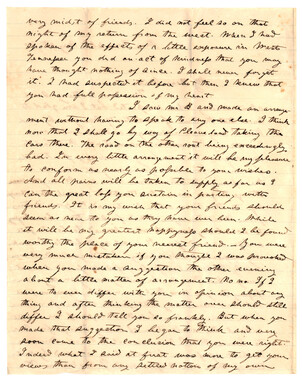 very midst of friends. I did not feel so on that
night of my return from the west. When I had
spoken of the effects of a little exposure in West
Tennessee you did an act of kindness that you may
have thought nothing of since. I shall never forget
it. I had suspected it before but then I knew that
you had full possession of my heart.
I saw Mr B and made an arran
ment without having to speak to any one else. I think
now that I shall go by way of Cleaveland taking the
Cars there. The road on the other route being exceedingly
bad. In every little arrangement it will be my pleasure
to conform as nearly as possible to your wishes.
And all pains will be taken to supply as far as I
can the great loss you sustain in parting with
friends. It is my wish that your friends should
seem as near to you as they ever have been. While
it will be my greatest happiness should I be found
worthy the place of your nearest friend. — You were
very much mistaken if you thought I was provoked
when you made a suggestion the other evening
about a little matter of arrangement. No no If I
were to ever differ with you in opinion about any
thing and after thinking the matter over should still
differ I should tell you so frankly. But when you
made that suggestion I began to think and very
soon came to the conclusion that you were right.
Indeed what I said at first was more to get your
views than from any settled notion of my own